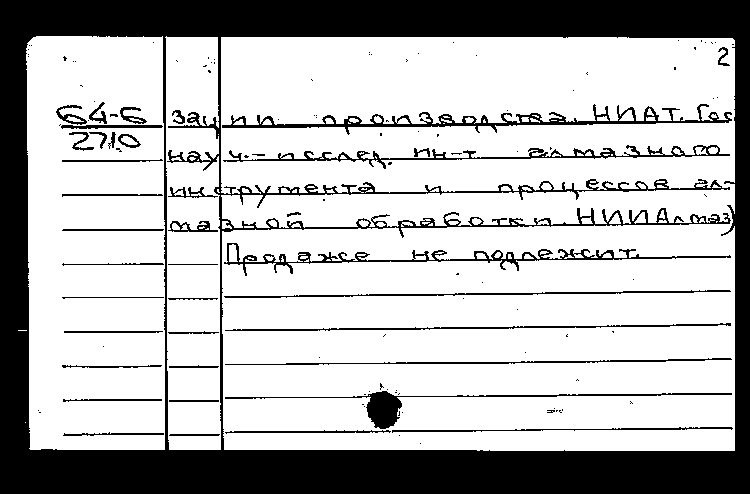 2
64-6 зации производства. НИАТ. Гос.
2710
науч.-исслед. ин-т алмазного
инструмента и процессов ал-
мазной обработки. НИИАлмаз)
Продаже не подлежит.